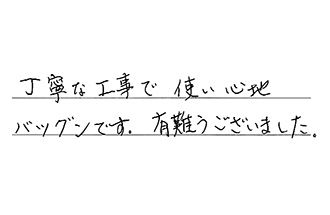 丁寧な工事で 使い心地
バツグンです. 有難うございました。